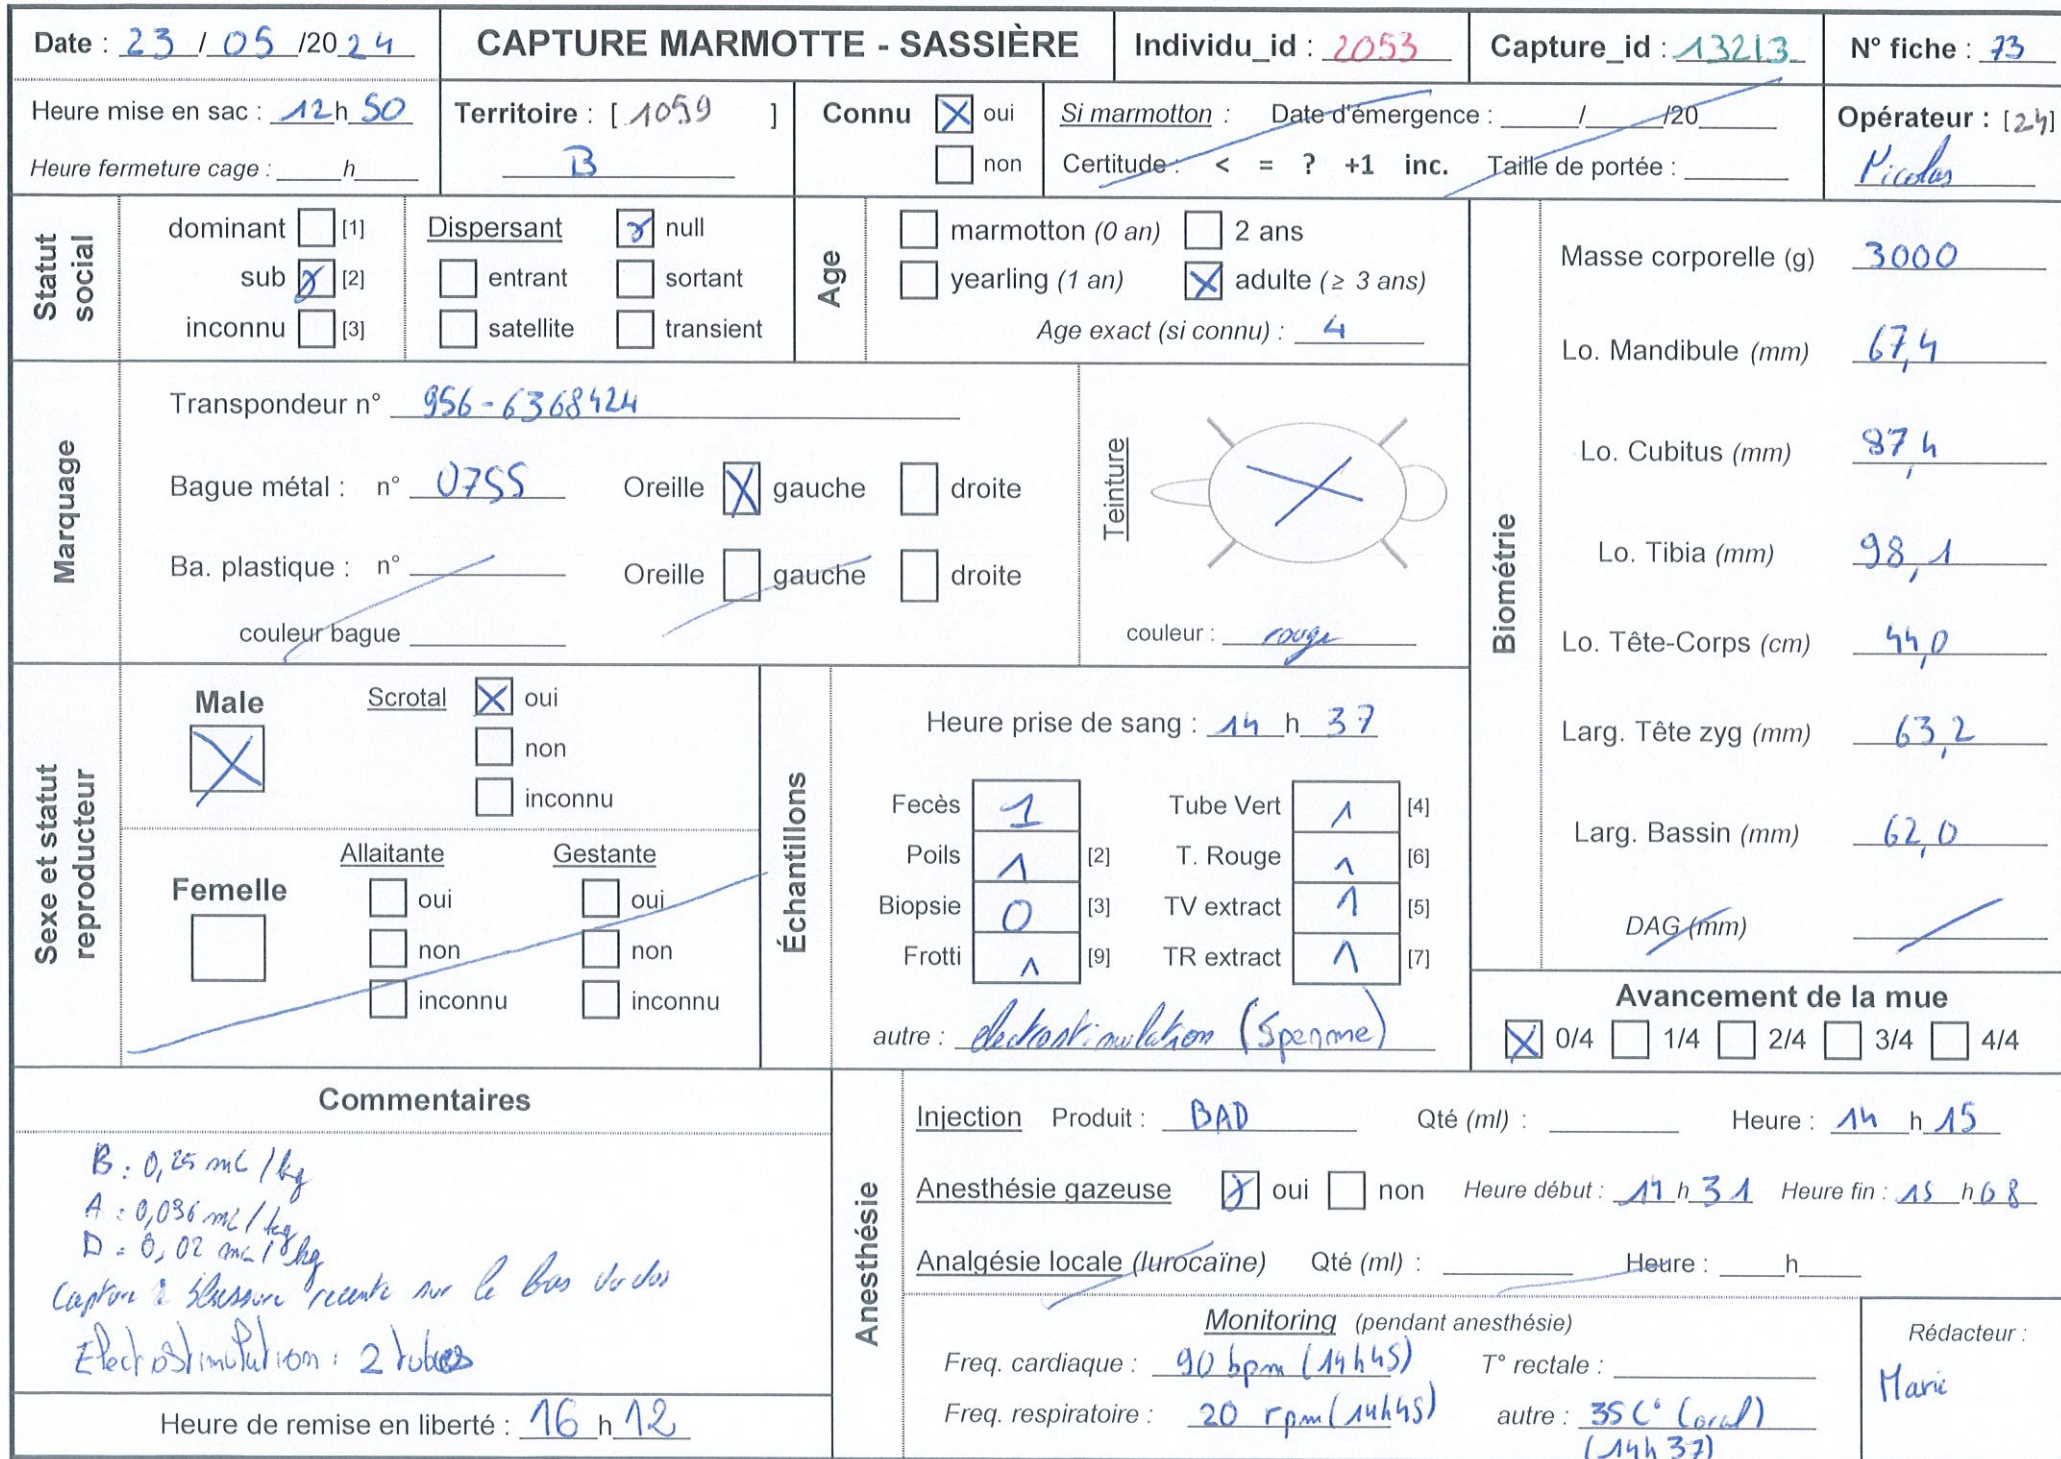 Date : 23 / 05 /2024
CAPTURE MARMOTTE - SASSIÈRE
Individu_id : 2053
Capture_id : 13213
N° fiche : 73
Heure mise en sac : 12h 50
Heure fermeture cage : h
Territoire : [ 1059 ]
B
Connu oui
non
Si marmotton : Date d'émergence : / /20
Certitude : < = ? +1 inc. Taille de portée :
Opérateur : [24]
Nicolas
Statut social
dominant [1]
sub [2]
inconnu [3]
Dispersant null
entrant sortant
satellite transient
Age
marmotton (0 an) 2 ans
yearling (1 an) adulte (≥ 3 ans)
Age exact (si connu) : 4
Marquage
Transpondeur n° 956-6368424
Bague métal : n° 0755 Oreille gauche droite
Ba. plastique : n° Oreille gauche droite
couleur bague
Teinture
couleur : rouge
Biométrie
Masse corporelle (g) 3000
Lo. Mandibule (mm) 67,4
Lo. Cubitus (mm) 87,4
Lo. Tibia (mm) 98,1
Lo. Tête-Corps (cm) 44,0
Larg. Tête zyg (mm) 63,2
Larg. Bassin (mm) 62,0
DAG (mm)
Sexe et statut reproducteur
Male
Scrotal oui
non
inconnu
Femelle
Allaitante Gestante
oui oui
non non
inconnu inconnu
Échantillons
Heure prise de sang : 14 h 37
Fecès 1 Tube Vert 1 [4]
Poils 1 [2] T. Rouge 1 [6]
Biopsie 0 [3] TV extract 1 [5]
Frotti 1 [9] TR extract 1 [7]
autre : electrostimulation (Sperme)
Avancement de la mue
0/4 1/4 2/4 3/4 4/4
Commentaires
B : 0,25 mL / kg
A : 0,036 mL / kg
D : 0,02 mL / kg
Capture : blessure recente sur le bas du dos
Electrostimulation : 2 tubes
Heure de remise en liberté : 16 h 12
Anesthésie
Injection Produit : BAD Qté (ml) : Heure : 14 h 15
Anesthésie gazeuse oui non Heure début : 14 h 31 Heure fin : 15 h 08
Analgésie locale (lurocaïne) Qté (ml) : Heure : h
Monitoring (pendant anesthésie)
Freq. cardiaque : 90 bpm (14h45) T° rectale :
Freq. respiratoire : 20 rpm (14h45) autre : 35 C° (oral)
(14h 37)
Rédacteur :
Marie